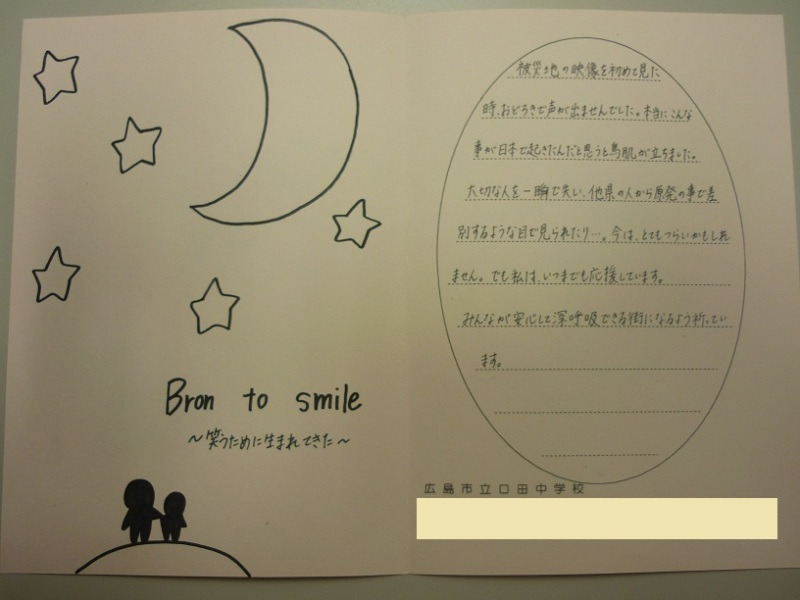 Bron to smile
～笑うために生まれてきた～
被災地の映像を初めて見た
時、おどろきで声が出ませんでした。本当にこんな
事が日本で起きたんだと思うと鳥肌が立ちました。
大切な人を一瞬で失い、他県の人から原発の事で差
別するような目で見られたり…。今は、とてもつらいかもしれ
ません。でも私は、いつまでも応援しています。
みんなが安心して深呼吸できる街になるよう祈ってい
ます。
広島市立口田中学校